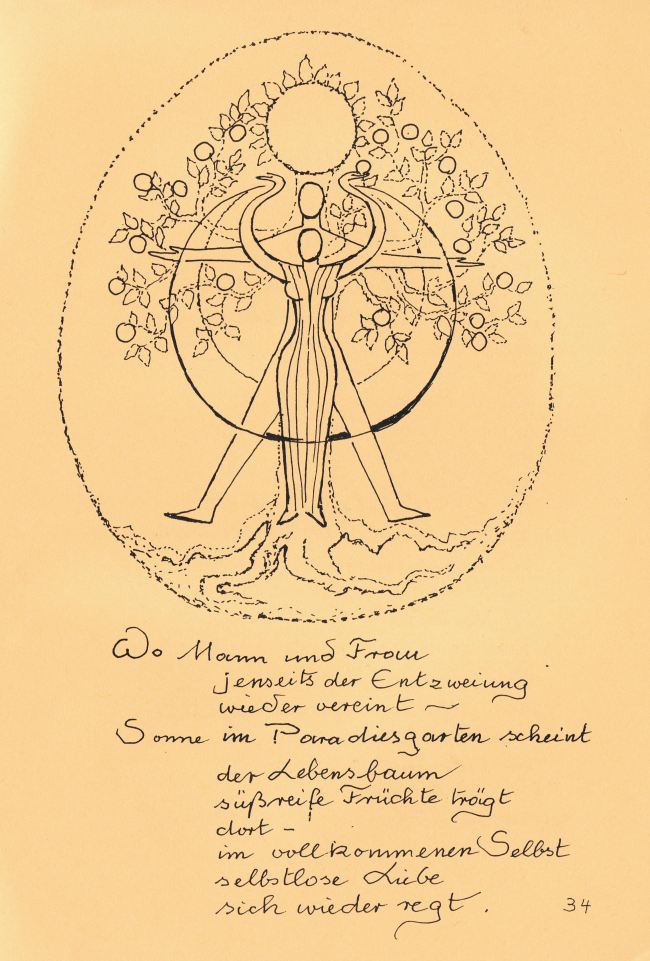 Wo Mann und Frau
jenseits der Entzweiung
wieder vereint ~
Sonne im Paradiesgarten scheint
der Lebensbaum
süßreife Früchte trägt
dort –
im vollkommenen Selbst
selbstlose Liebe
sich wieder regt.
34